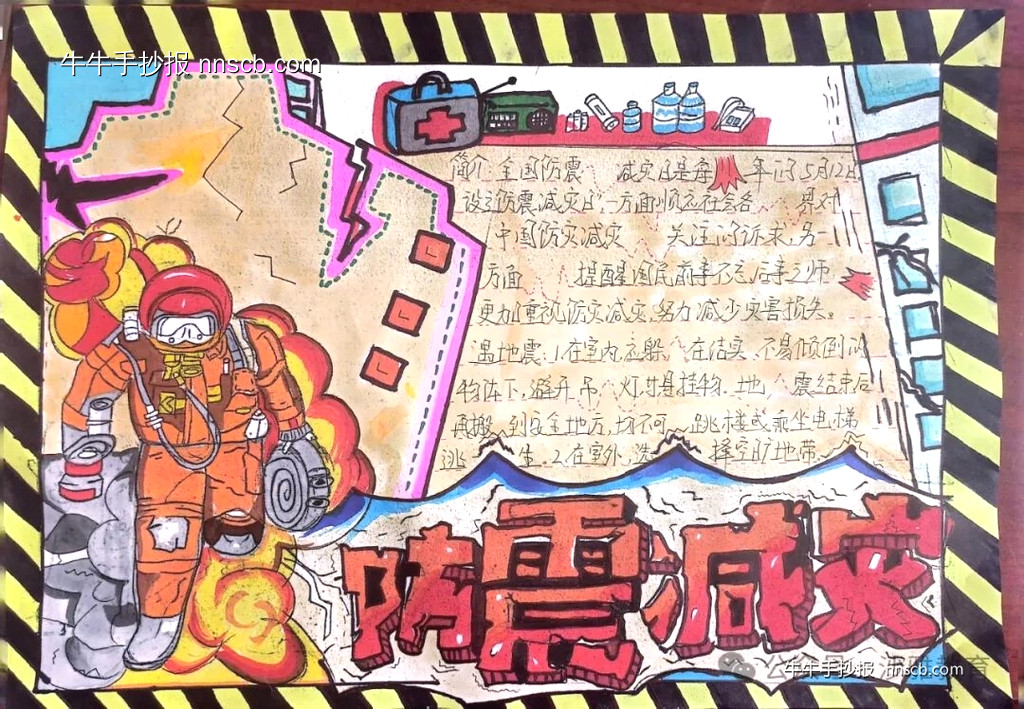 牛牛手抄报 nnscb.com
简介:全国防震 减灾日是每 年的5月12日
设立防震减灾日,一方面顺应社会各 界对
中国防灾减灾 关注的诉求,另一
方面 提醒国民前事不忘后事之师
更加重视防灾减灾,努力减少灾害损失。
遇地震:1.在室内应躲 在结实、不易倾倒的
物体下,避开吊 灯等悬挂物.地 震结束后
再搬 到安全地方,切不可 跳楼或乘坐电梯
逃 生.2.在室外,选 择空旷地带.
防震减灾
公众号
教育
牛牛手抄报 nnscb.com